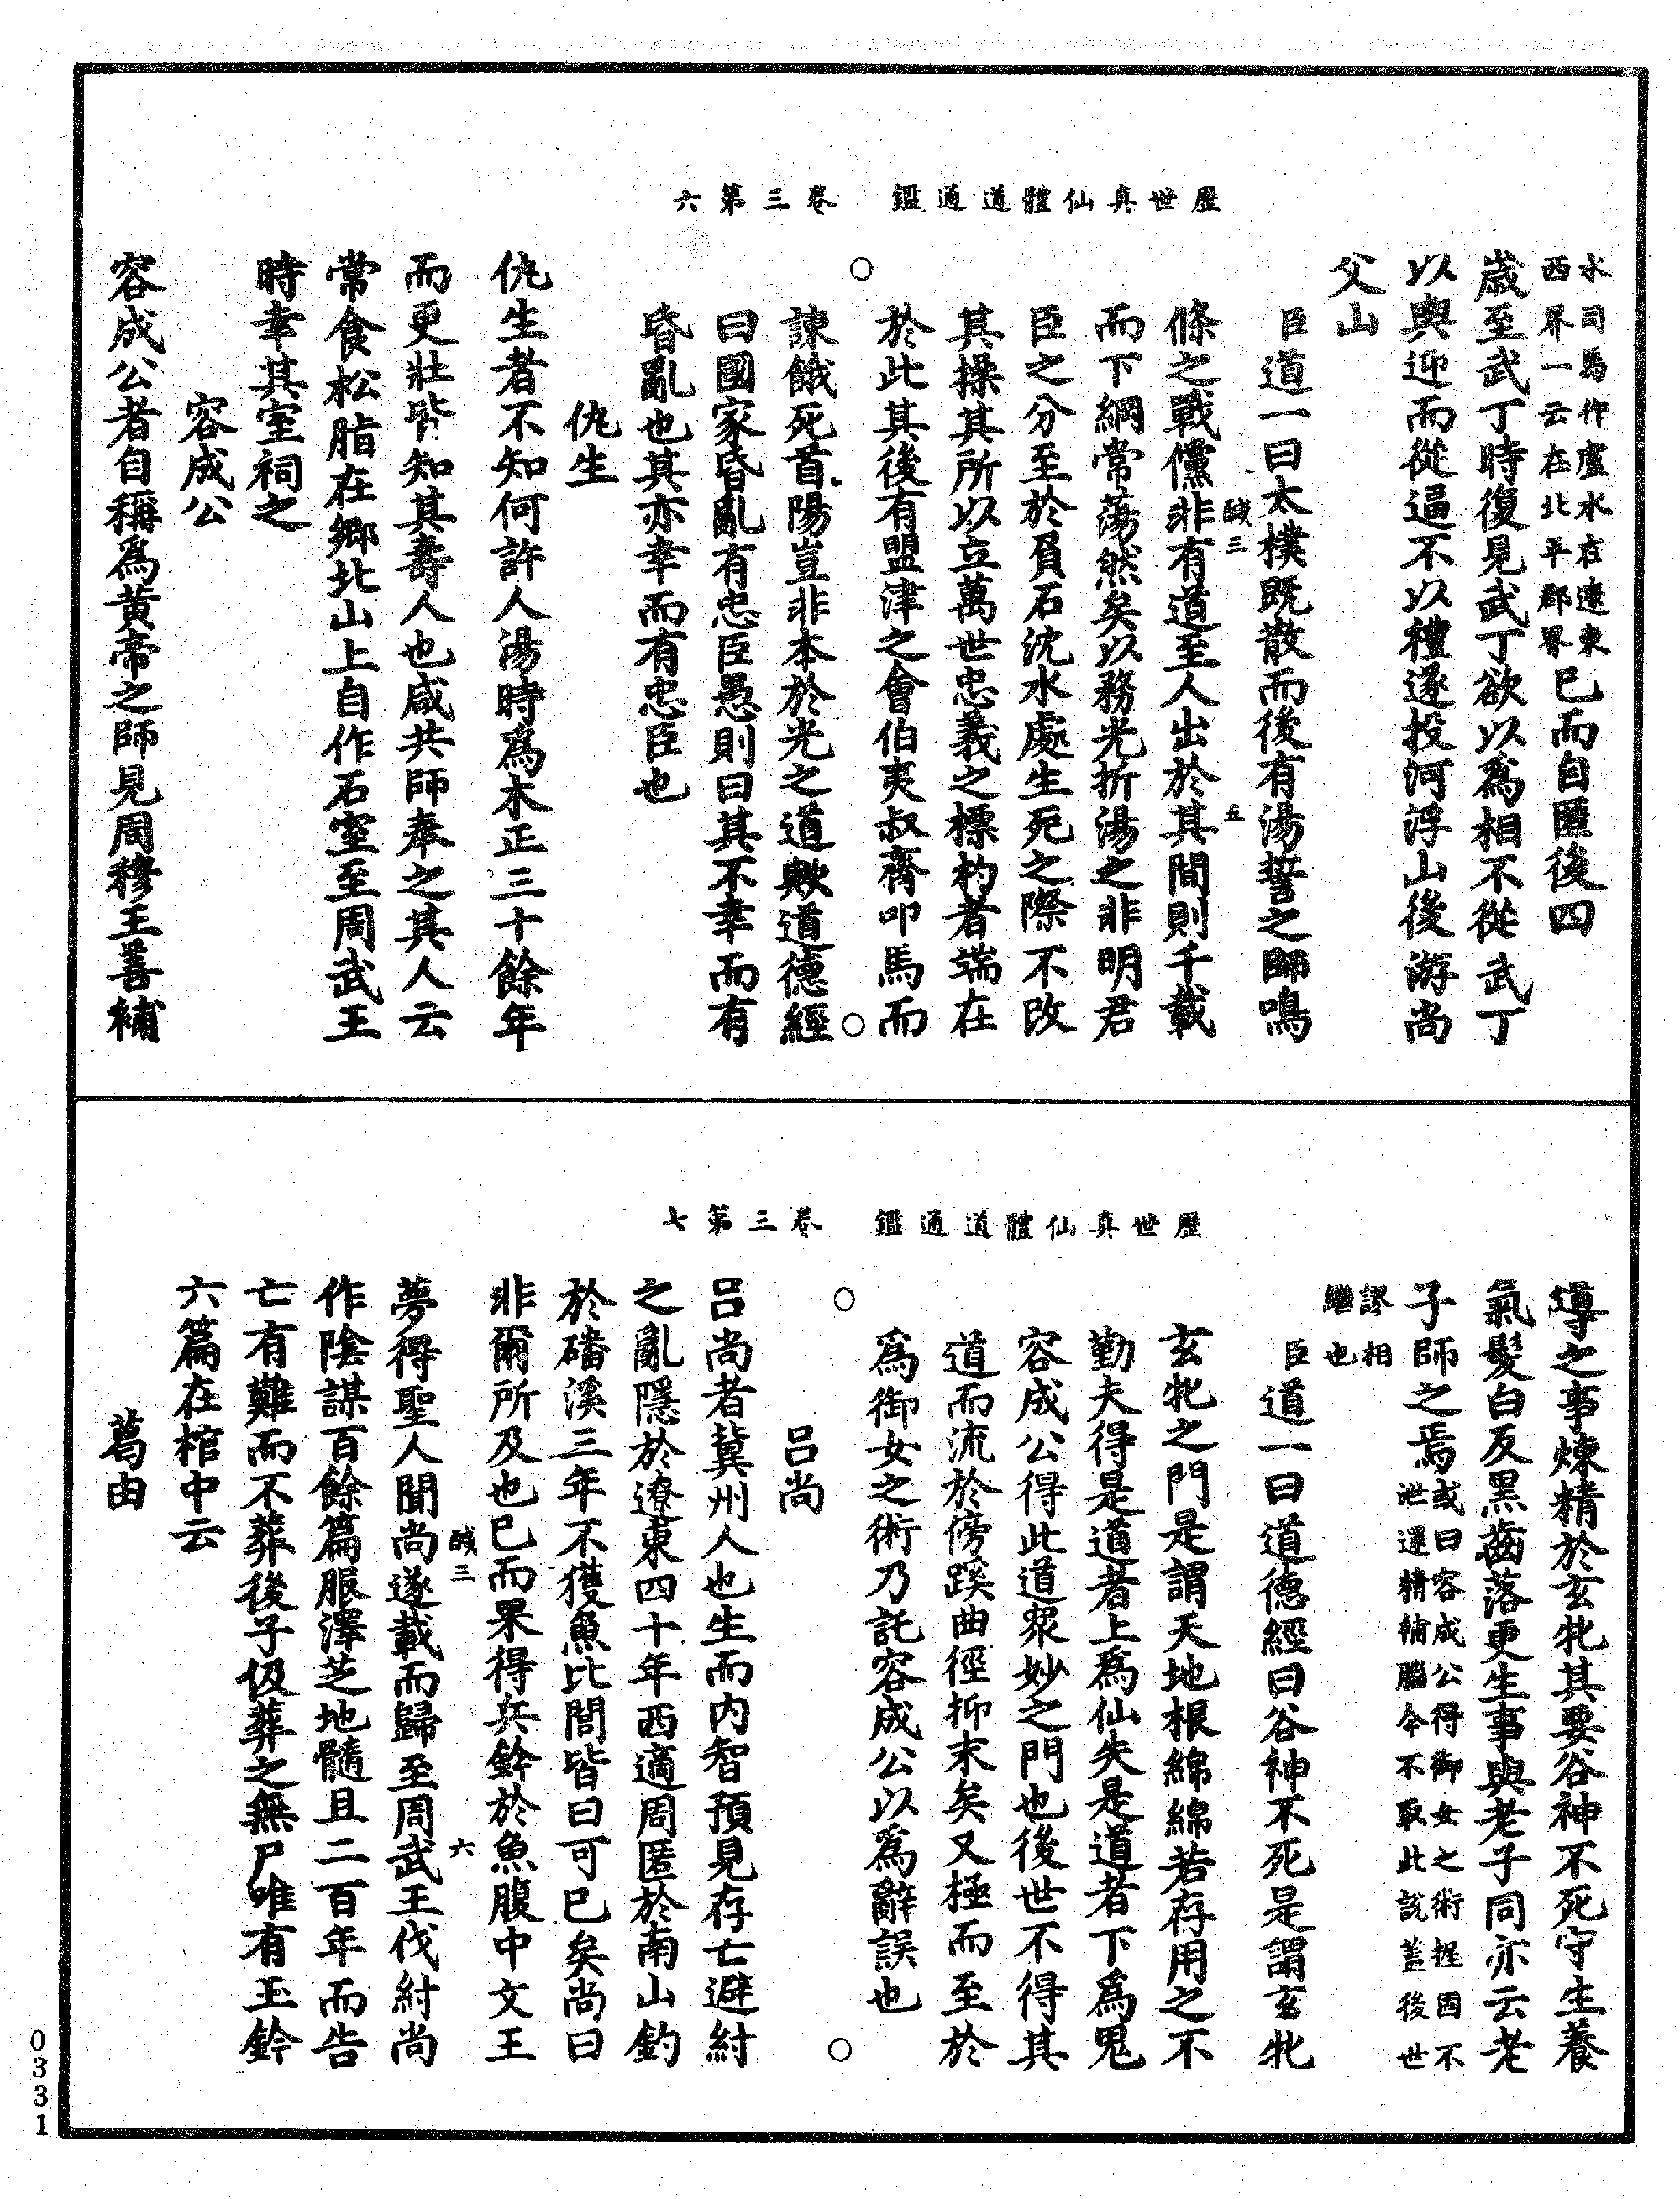 歷世真仙體道通鑑　卷三第六
水司馬作盧水在遼東
西界一云在北平郡界已而自匿後四
歲至武丁時復見武丁欲以爲相不從武丁
以輿迎而從逼不以禮遂投河浮山後游尚
父山
臣道一曰太樸既散而後有湯誓之師鳴
鹹三　五
條之戰儻非有道至人出於其間則千載
而下綱常蕩然矣以務光折湯之非明君
臣之分至於負石沈水處生死之際不改
其操其所以立萬世忠義之標杓者端在
於此其後有盟津之會伯夷叔齊叩馬而
諫餓死首陽豈非本於光之道歟道德經
曰國家昏亂有忠臣愚則曰其不幸而有
昏亂也其亦幸而有忠臣也
仇生
仇生者不知何許人湯時爲木正三十餘年
而更壯皆知其壽人也咸共師奉之其人云
常食松脂在鄉北山上自作石室至周武王
時幸其室祠之
容成公
容成公者自稱爲黃帝之師見周穆王善補
歷世真仙體道通鑑　卷三第七
導之事煉精於玄牝其要谷神不死守生養
氣髮白反黑齒落更生事與老子同亦云老
子師之焉或曰容成公得御女之術握固不
泄還精補腦今不取此說蓋後世
謬相
繼也
臣道一曰道德經曰谷神不死是謂玄牝
玄牝之門是謂天地根綿綿若存用之不
勤夫得是道者上爲仙失是道者下爲鬼
容成公得此道眾妙之門也後世不得其
道而流於傍蹊曲徑抑末矣又極而至於
爲御女之術乃託容成公以爲辭誤也
呂尚
呂尚者冀州人也生而內智預見存亡避紂
之亂隱於遼東四十年西適周匿於南山釣
於磻溪三年不獲魚比閭皆曰可已矣尚曰
非爾所及也已而果得兵鈐於魚腹中文王
鹹三　六
夢得聖人聞尚遂載而歸至周武王伐紂尚
作陰謀百餘篇服澤芝地髓且二百年而告
亡有難而不葬後子伋葬之無尸唯有玉鈐
六篇在棺中云
葛由
0331